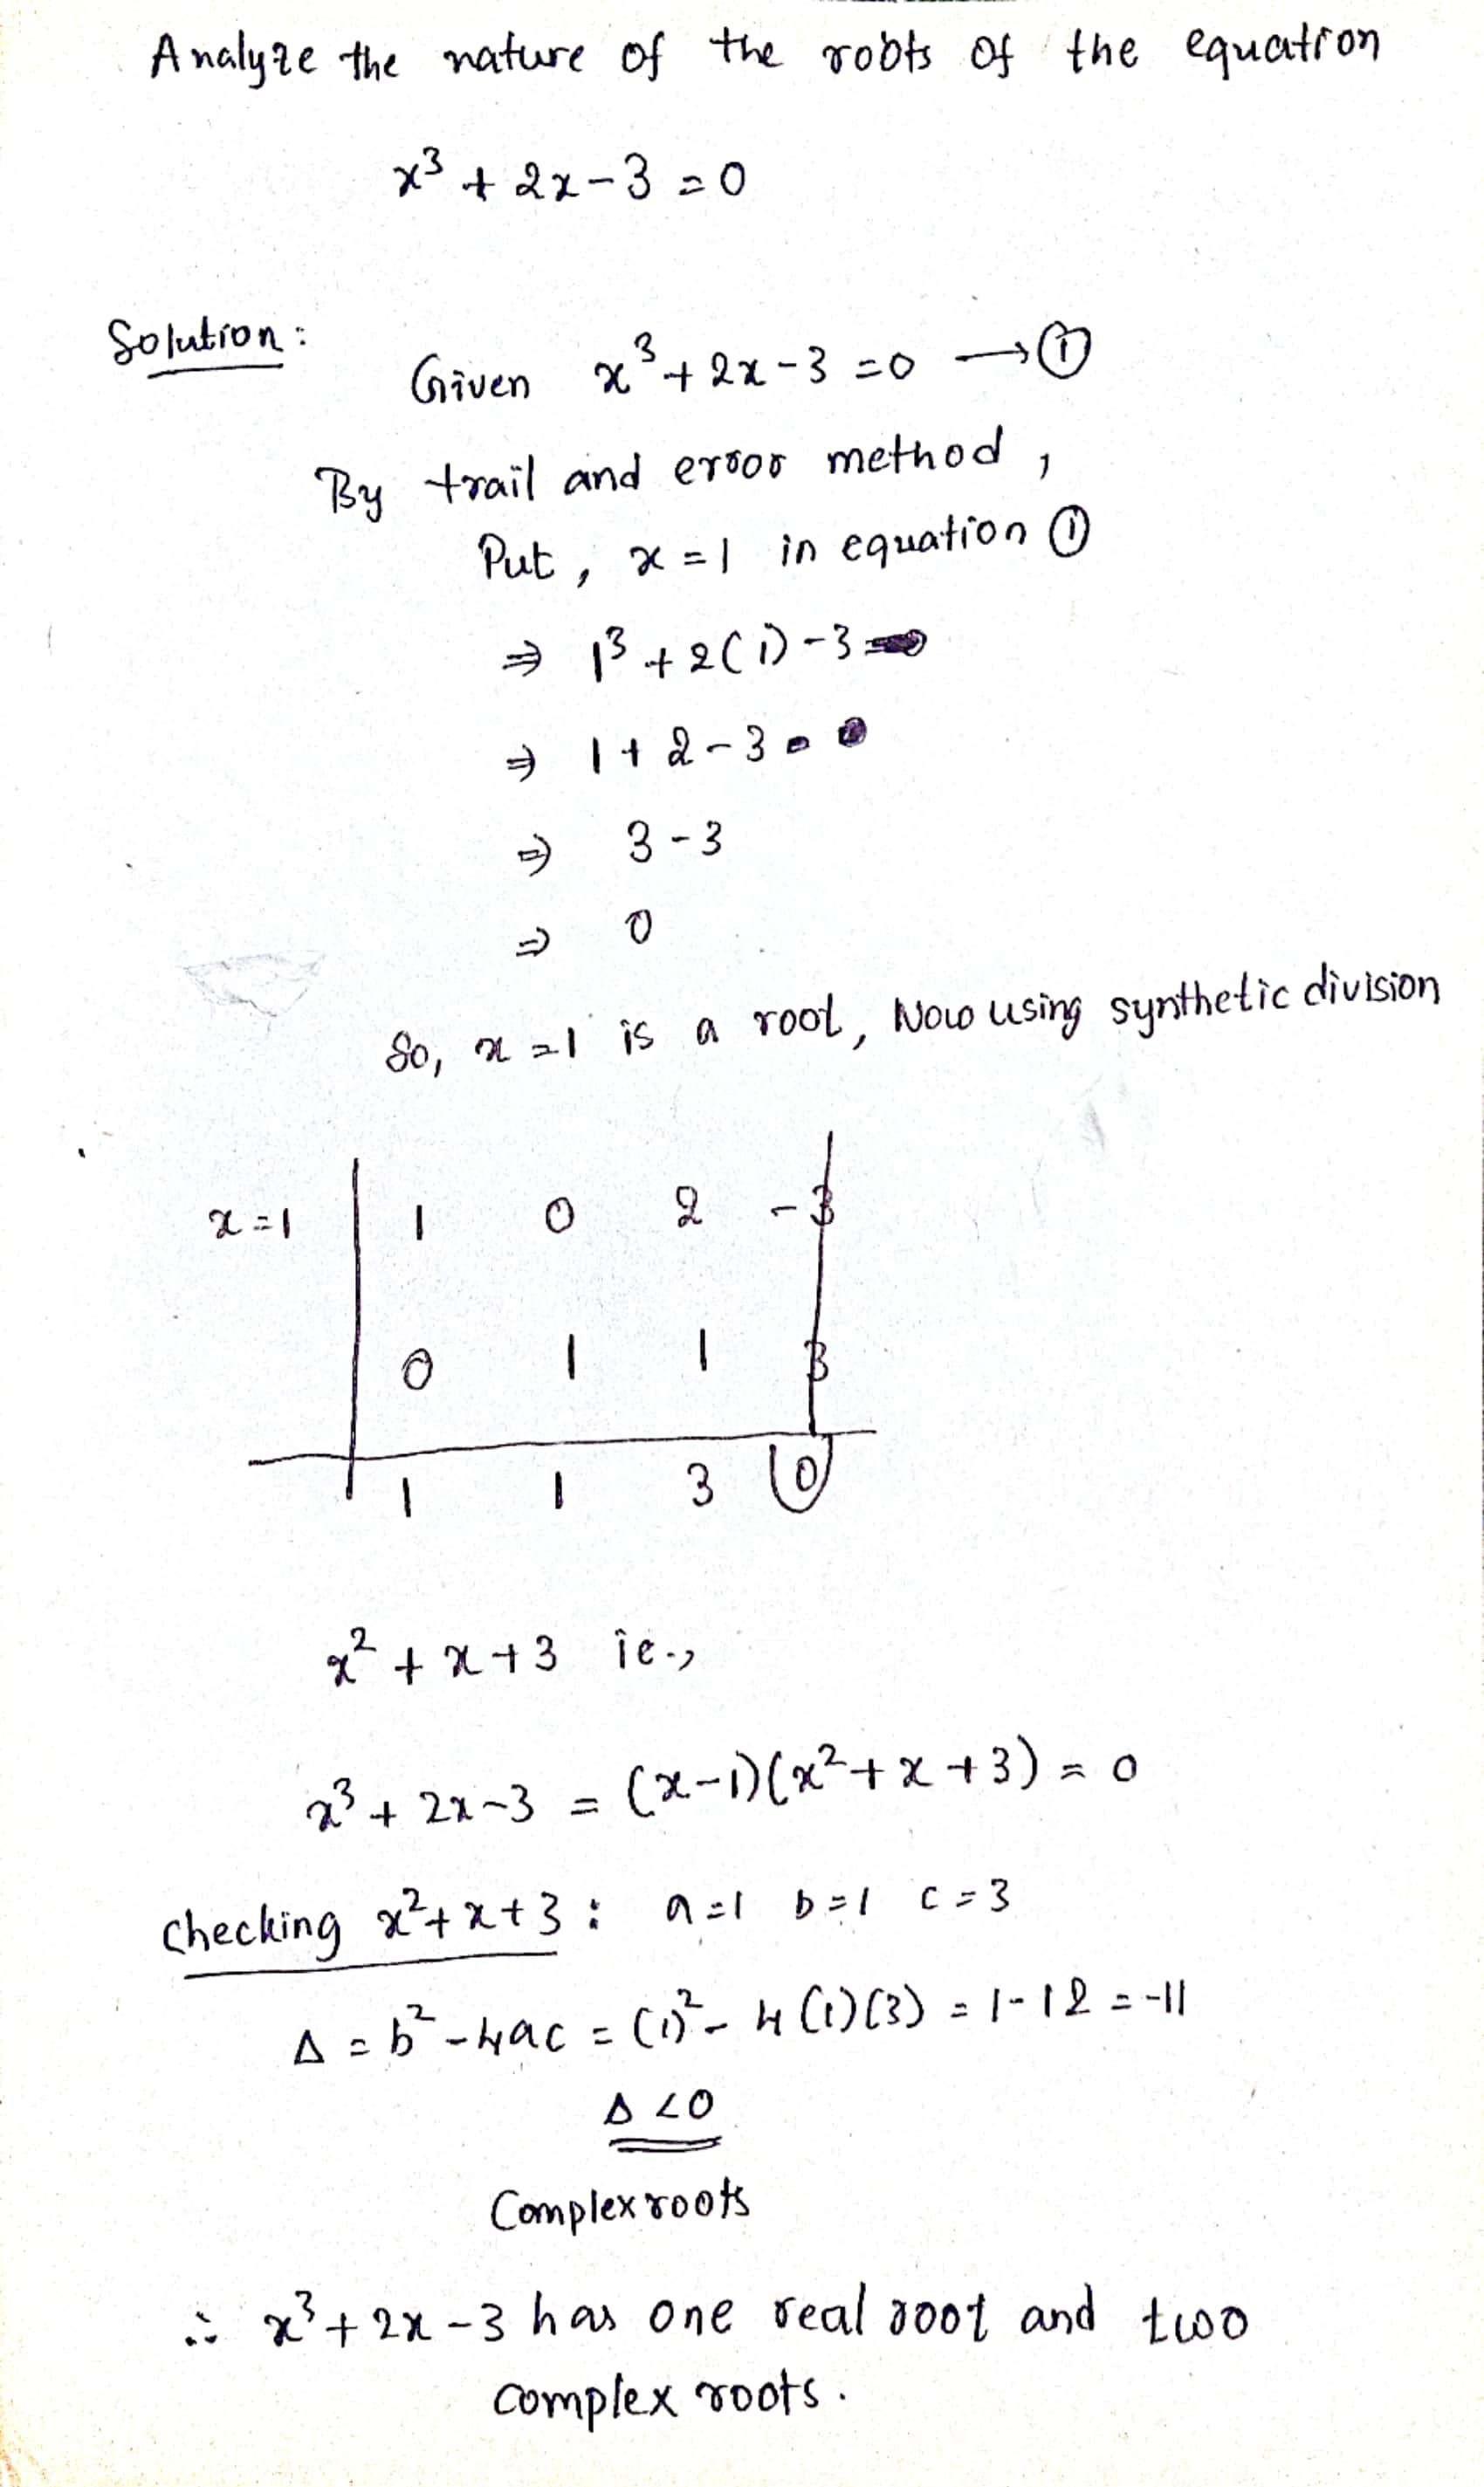 Analyze the nature of the roots of the equation
x³ + 2x - 3 = 0
Solution:
Given x³ + 2x - 3 = 0 → ①
By trail and error method,
Put, x = 1 in equation ①
⇒ 1³ + 2(1) - 3
⇒ 1 + 2 - 3
⇒ 3 - 3
⇒ 0
So, x = 1 is a root, Now using synthetic division
x = 1 | 1 0 2 -3
0 1 1 3
1 1 3 0
x² + x + 3 ie.,
x³ + 2x - 3 = (x-1)(x² + x + 3) = 0
Checking x² + x + 3 : a = 1 b = 1 c = 3
Δ = b² - 4ac = (1)² - 4(1)(3) = 1 - 12 = -11
Δ < 0
Complex roots
∴ x³ + 2x - 3 has one real root and two
complex roots.